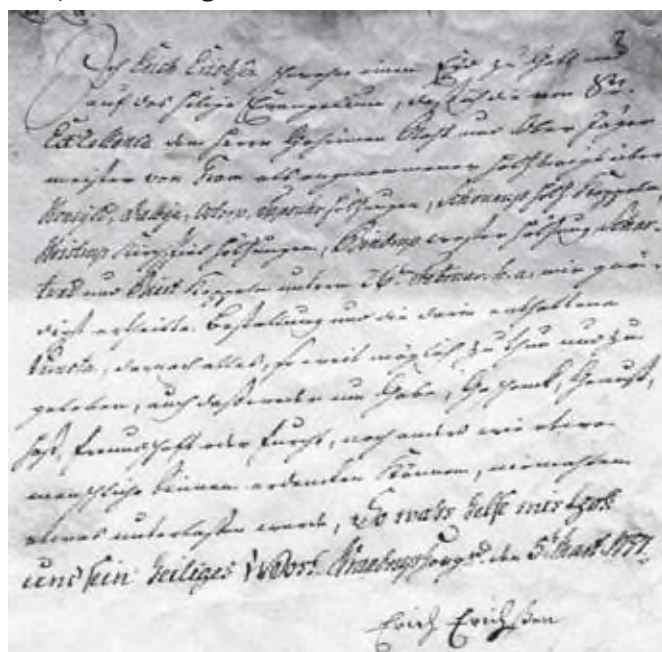 Ich Erich Erichsen schwere einen Eid zu Gott und
auf das heilige Evangelium, daß ich die von Sr.
Excellence dem Herrn Geheimen Raht und Ober Jäger
meister von Gram als angenommener Holtzvoigt über
Höltzungen,
Höltzungen,
und Koppeln unterm 26ten Februar. h. a. mir gnä-
digst ertheilte Bestallung und die darin enthaltene
Puncta, darnach alles, so weit möglich zu thun und zu
geloben, auch daß weder um Gabe, Geschenk, Gunst,
Haß, Freundschaft oder Furcht, noch anders wie etwa
menschliche Sinnen erdencken können, niemahlen
etwas unterlaßen werde, So wahr helfe mir Gott
und sein heiliges Wort. den 5t Mart
Erich Erichßen